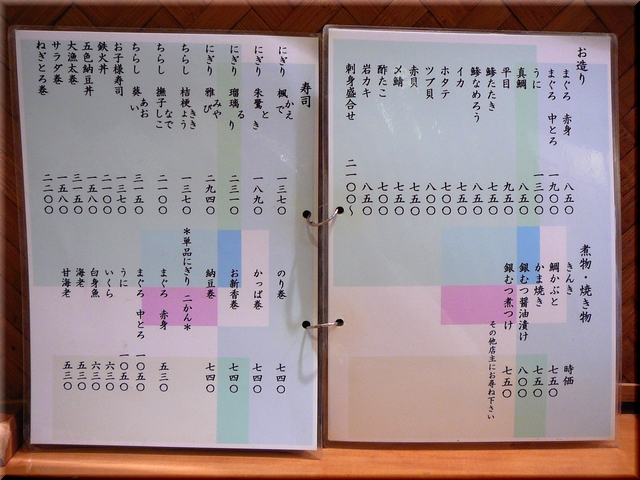 お造り
まぐろ 赤身 八五〇
まぐろ 中とろ 一九〇〇
うに 一三〇〇
真鯛 八五〇
平目 九五〇
鯵たたき 七五〇
鯵なめろう 八五〇
イカ 七五〇
ホタテ 七〇〇
ツブ貝 八〇〇
赤貝 七五〇
〆鯖 七五〇
酢たこ 七〇〇
岩カキ 八五〇
刺身盛合せ 二一〇〇〜
煮物・焼き物
きんき 時価
鯛かぶと 七五〇
かま焼き 七五〇
銀むつ醤油漬け 八〇〇
銀むつ煮つけ 七五〇
その他店主にお尋ね下さい
寿司
にぎり 楓 かえで 一三七〇
にぎり 朱鷺 とき 一八九〇
にぎり 瑠璃 るり 二三一〇
にぎり 雅び みや 二九四〇
ちらし 桔梗 ききょう 一三七〇
ちらし 撫子 なでしこ 二一〇〇
ちらし 葵 あおい 三一五〇
お子様寿司 一三七〇
鉄火丼 二一〇〇
五色納豆丼 一五八〇
大漁太巻 三一五〇
サラダ巻 一五八〇
ねぎとろ巻 二二〇〇
のり巻 七四〇
かっぱ巻 七四〇
お新香巻 七四〇
納豆巻 七四〇
＊単品にぎり 二かん＊
まぐろ 赤身 五三〇
まぐろ 中とろ 一〇五〇
うに 一〇五〇
いくら 六三〇
白身魚 六三〇
海老 五三〇
甘海老 五三〇